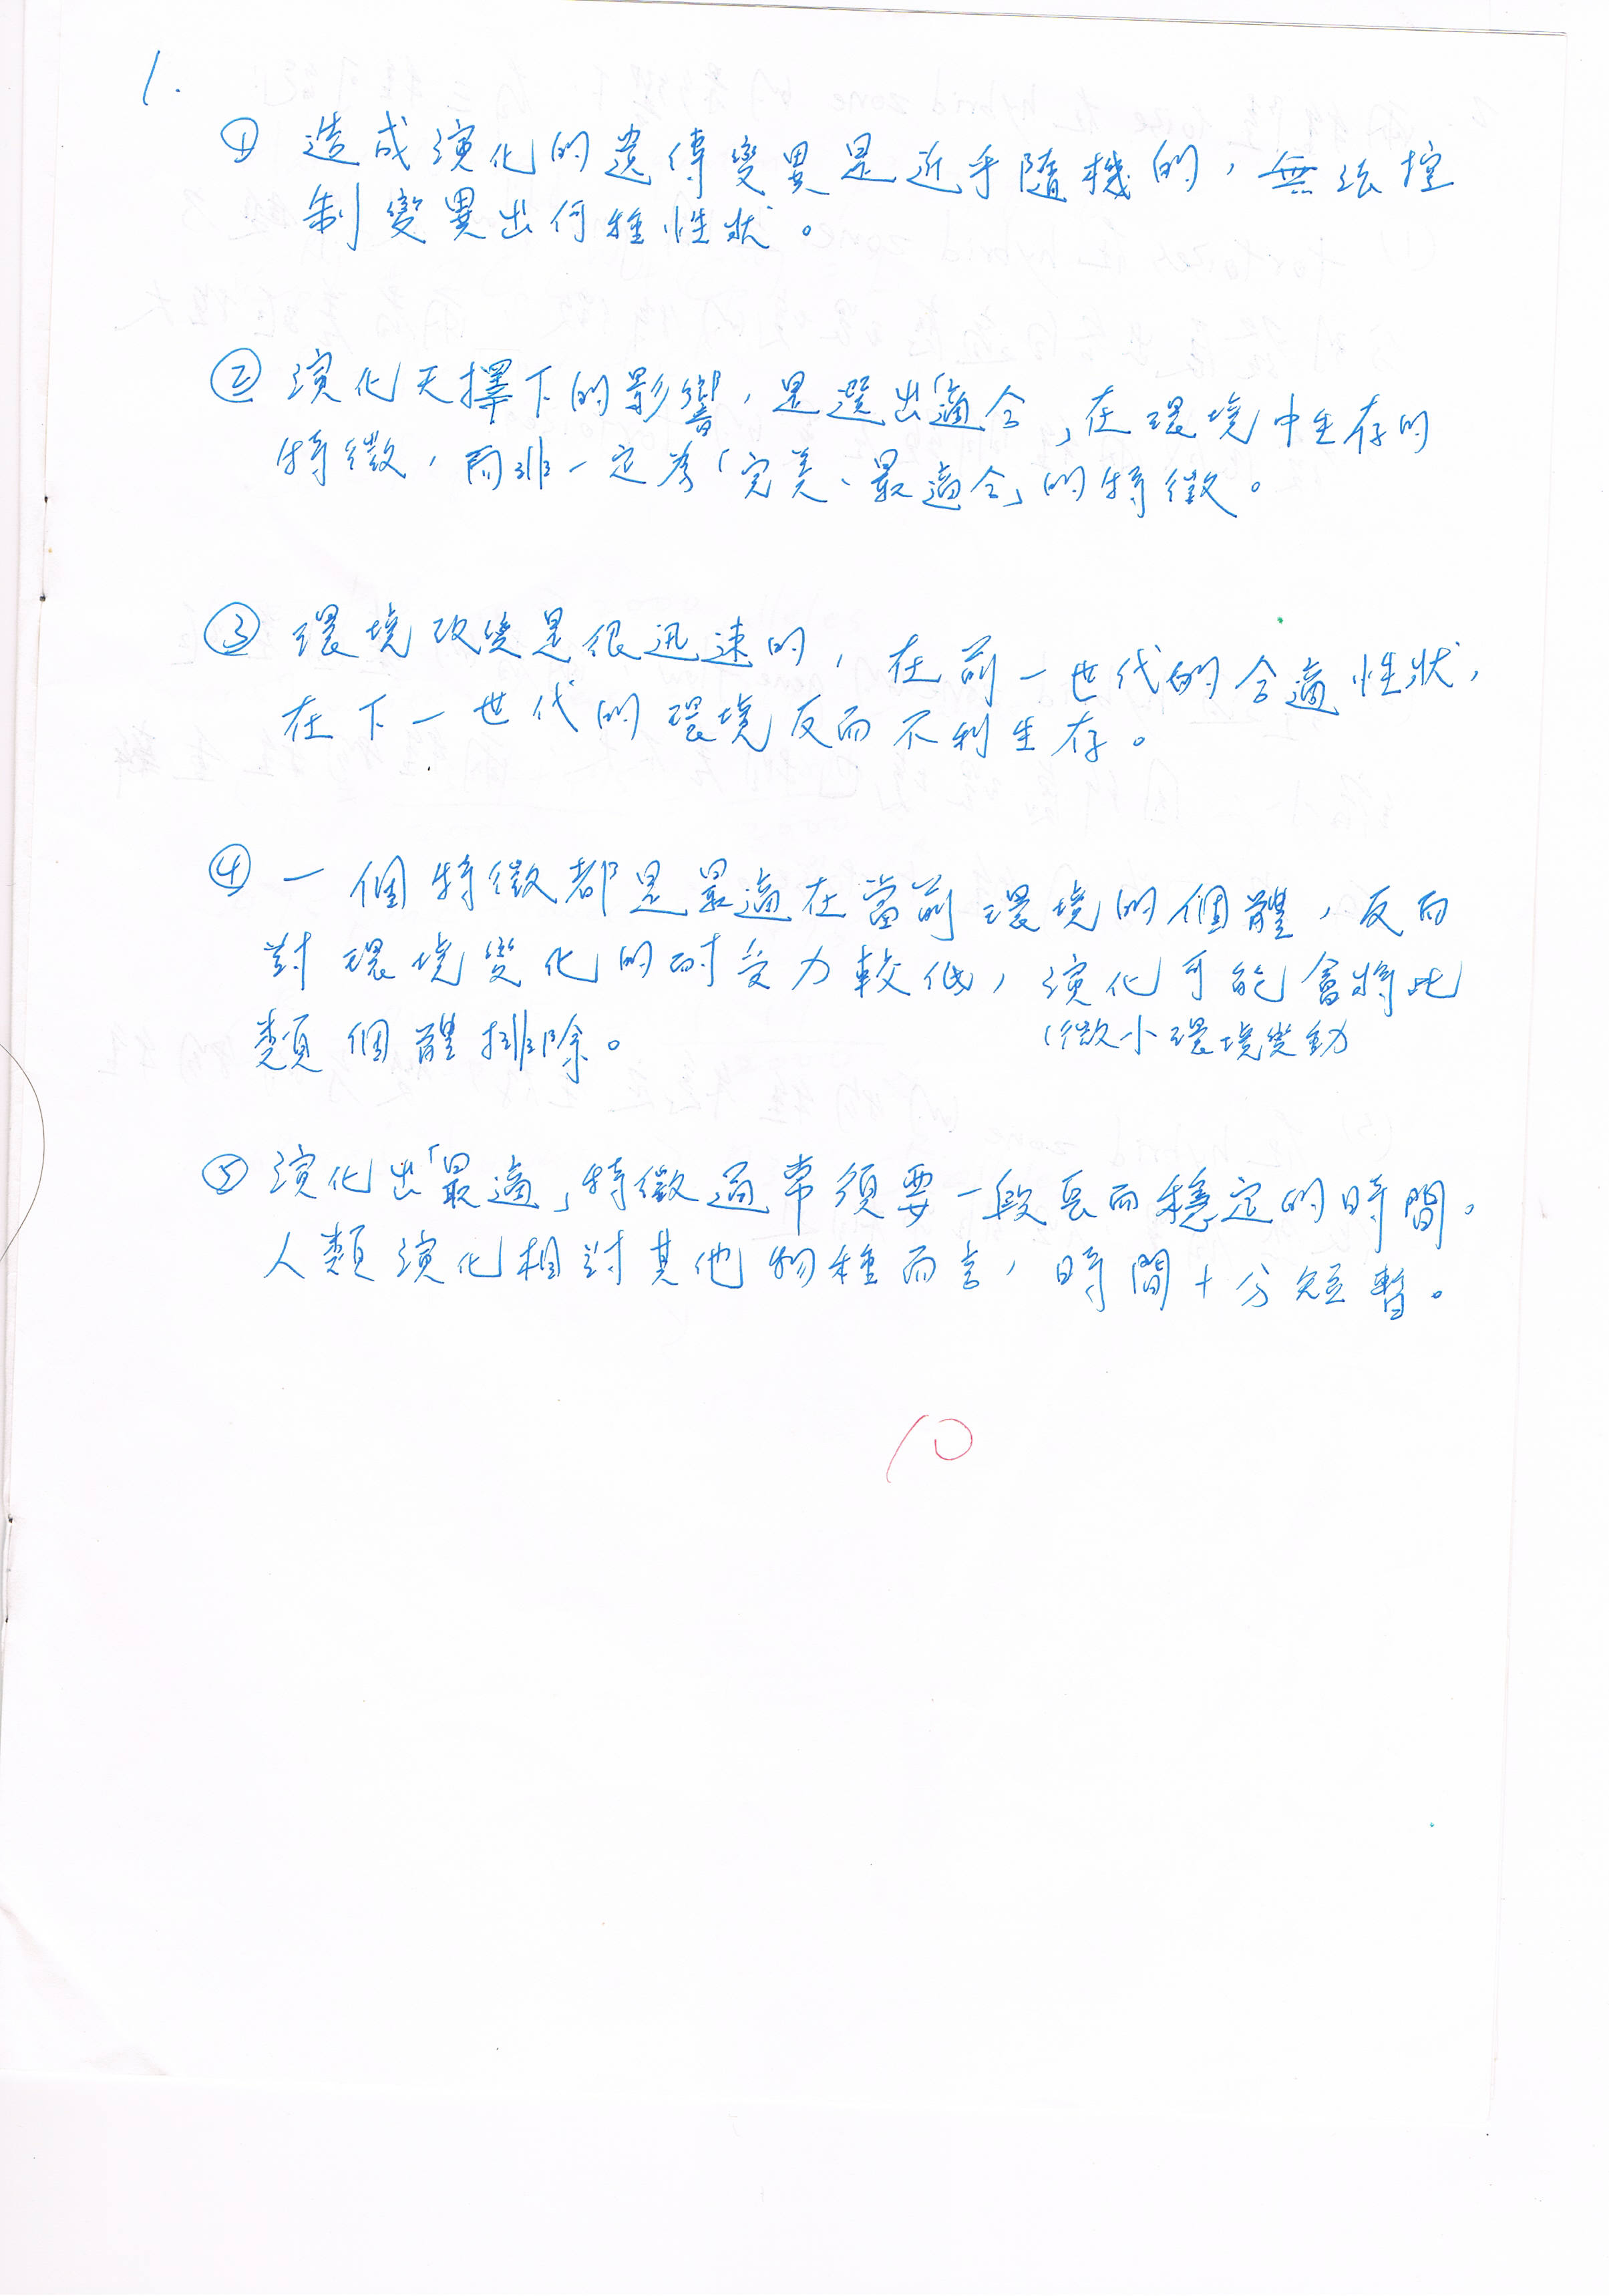 1.
① 造成演化的遺傳變異是近乎隨機的，無法控
制變異出何種性狀。
② 演化天擇下的影響，是選出「適合」在環境中生存的
特徵，而非一定為「完美、最適合」的特徵。
③ 環境改變是很迅速的，在前一世代的合適性狀，
在下一世代的環境反而不利生存。
④ 一個特徵都是最適在當前環境的個體，反而
對環境變化的耐受力較低，演化可能會將此
類個體排除。
(微小環境變動
⑤ 演化出「最適」特徵通常須要一段長而穩定的時間，
人類演化相對其他物種而言，時間十分短暫。
10